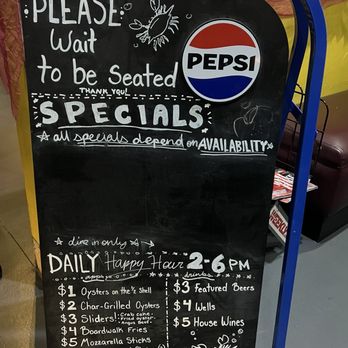 PLEASE
Wait
to be Seated
THANK YOU!
PEPSI
SPECIALS
all specials depend on AVAILABILITY
dine in only
DAILY Happy Hour 2-6 PM
drinks
$1 Oysters on the ½ Shell
$2 Char-Grilled Oysters
$3 Sliders! Crab Cake
Fried Oyster
Angus Beef
$4 Boardwalk Fries
$5 Mozzarella Sticks
$3 Featured Beers
$4 Wells
$5 House Wines